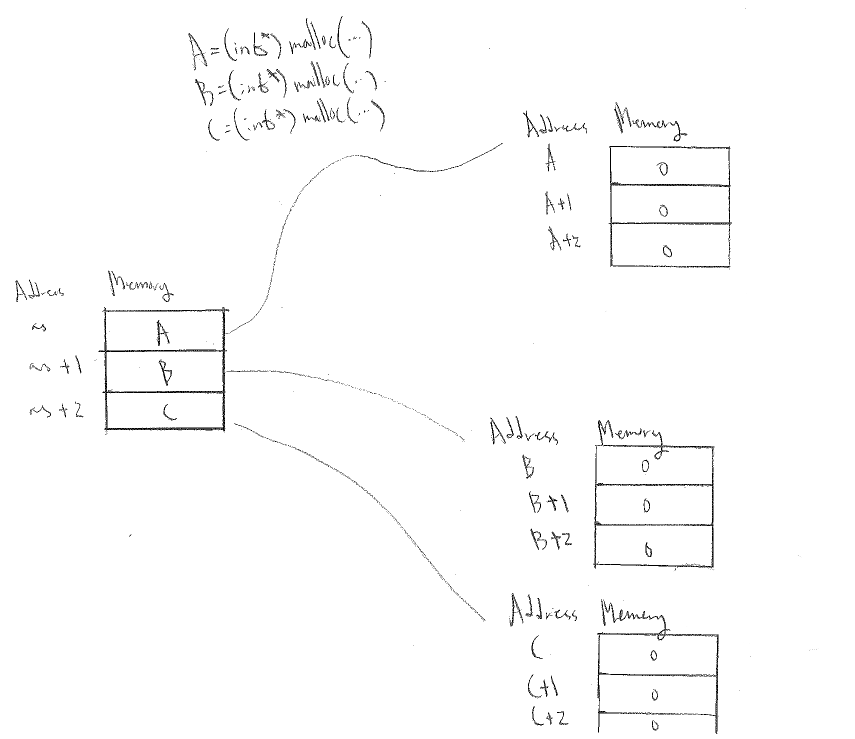 A=(int*) malloc(...)
B=(int*) malloc(...)
C=(int*) malloc(...)
Address Memory
A 0
A+1 0
A+2 0
Address Memory
as A
as+1 B
as+2 C
Address Memory
B 0
B+1 0
B+2 0
Address Memory
C 0
C+1 0
C+2 0